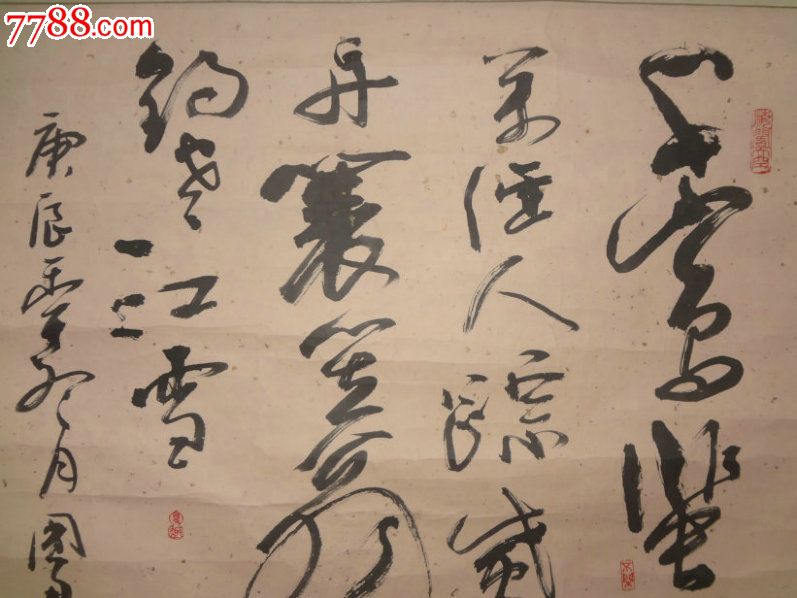 7788.com
千山鳥飛
萬徑人踪滅
舟蓑笠翁
釣寒江雪
庚辰 月